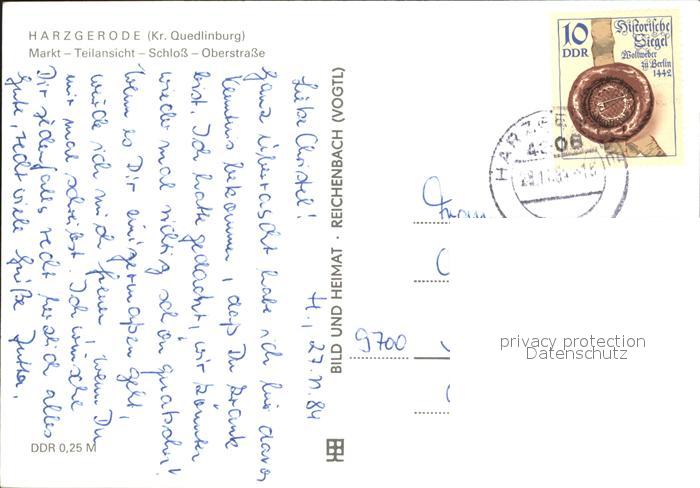 HARZGERODE (Kr. Quedlinburg)
Markt – Teilansicht – Schloß – Oberstraße
10
DDR
Historische
Siegel
Wollweber
zu Berlin
1442
HARZGE
43 06
H., 27.11.84
Liebe Christel!
Ganz überrascht habe ich hier davon
Kenntnis bekommen, daß Du krank
bist. Ich hatte gedacht, wir könnten
wieder mal richtig schön quatschen!
Wenn es Dir einigermaßen geht,
würde ich mich freuen, wenn Du
mir mal schreibst. Ich wünsche
Dir jedenfalls recht herzlich alles
Gute, recht viele Grüße Jutta.
BILD UND HEIMAT · REICHENBACH (VOGTL)
Frau
9700
privacy protection
Datenschutz
DDR 0,25 M